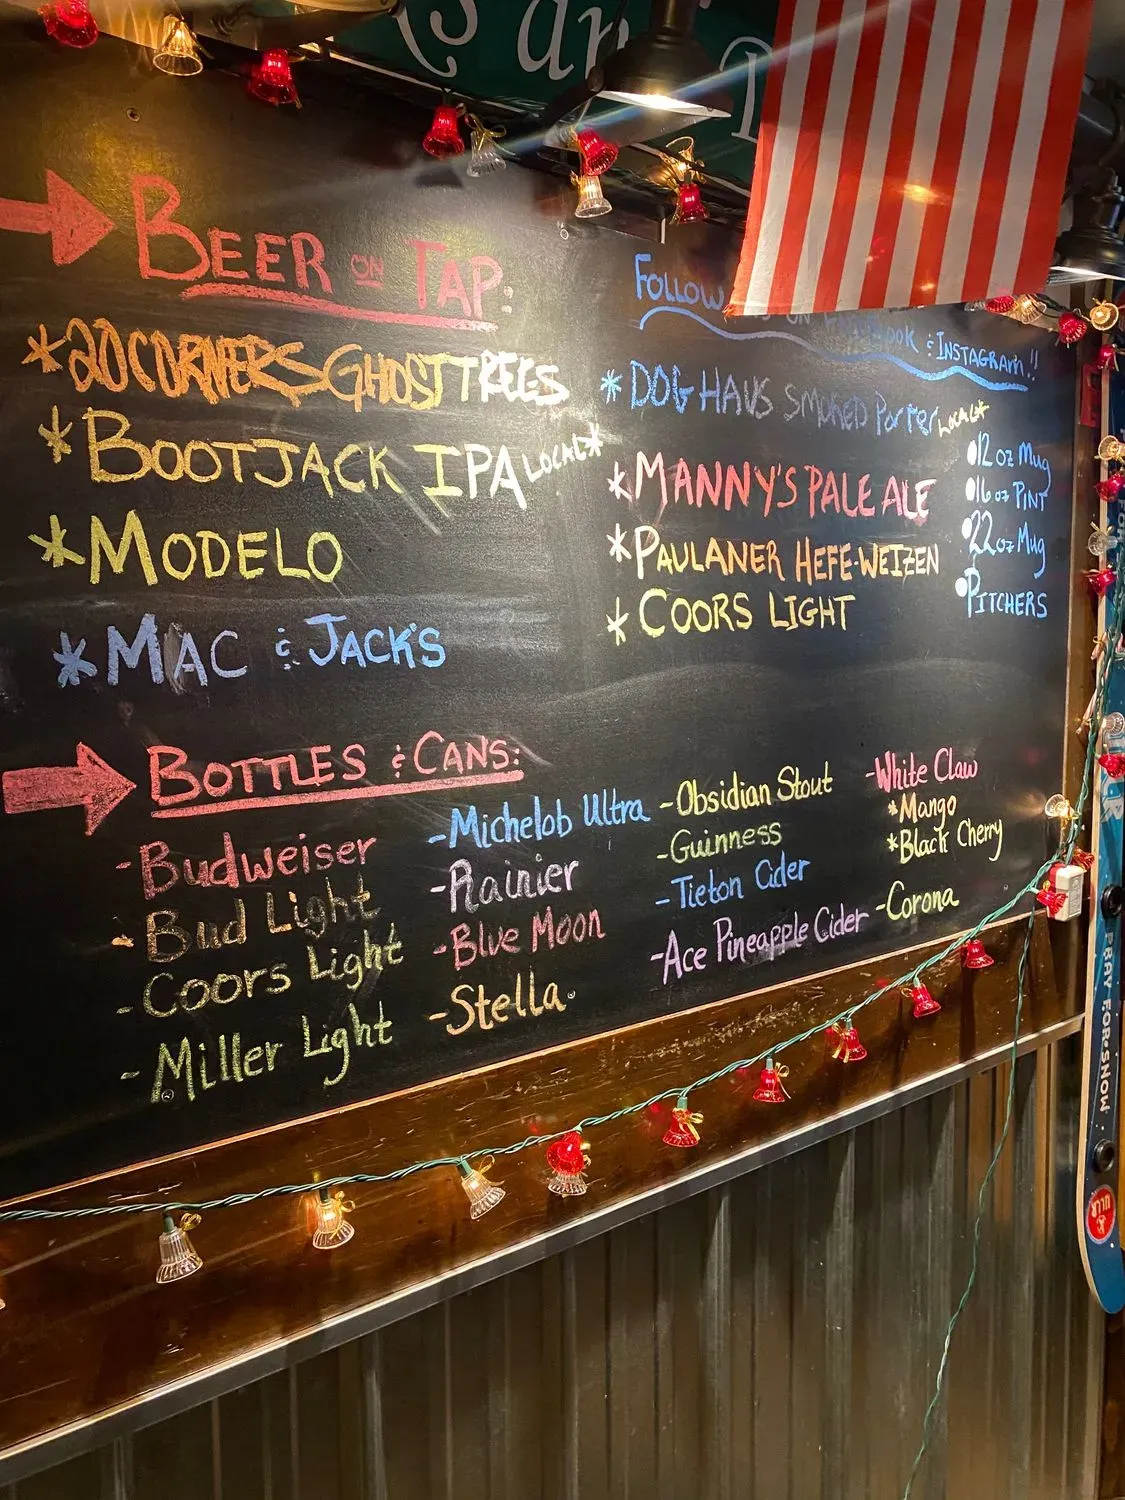 BEER ON TAP:
*20 CORNERS GHOST TREES
*BOOTJACK IPA LOCAL*
*MODELO
*MAC & JACK'S
FOLLOW ON & INSTAGRAM!!
*DOGHAUS SMOKED PORTER LOCAL*
*MANNY'S PALE ALE
*PAULANER HEFE-WEIZEN
*COORS LIGHT
•12 oz Mug
•16 oz PINT
•22 oz Mug
•PITCHERS
BOTTLES & CANS:
-Budweiser
-Bud Light
-Coors Light
-Miller Light
-Michelob Ultra
-Rainier
-Blue Moon
-Stella
-Obsidian Stout
-Guinness
-Tieton Cider
-Ace Pineapple Cider
-White Claw
*Mango
*Black Cherry
-Corona
PRAY FOR SNOW
ULLR